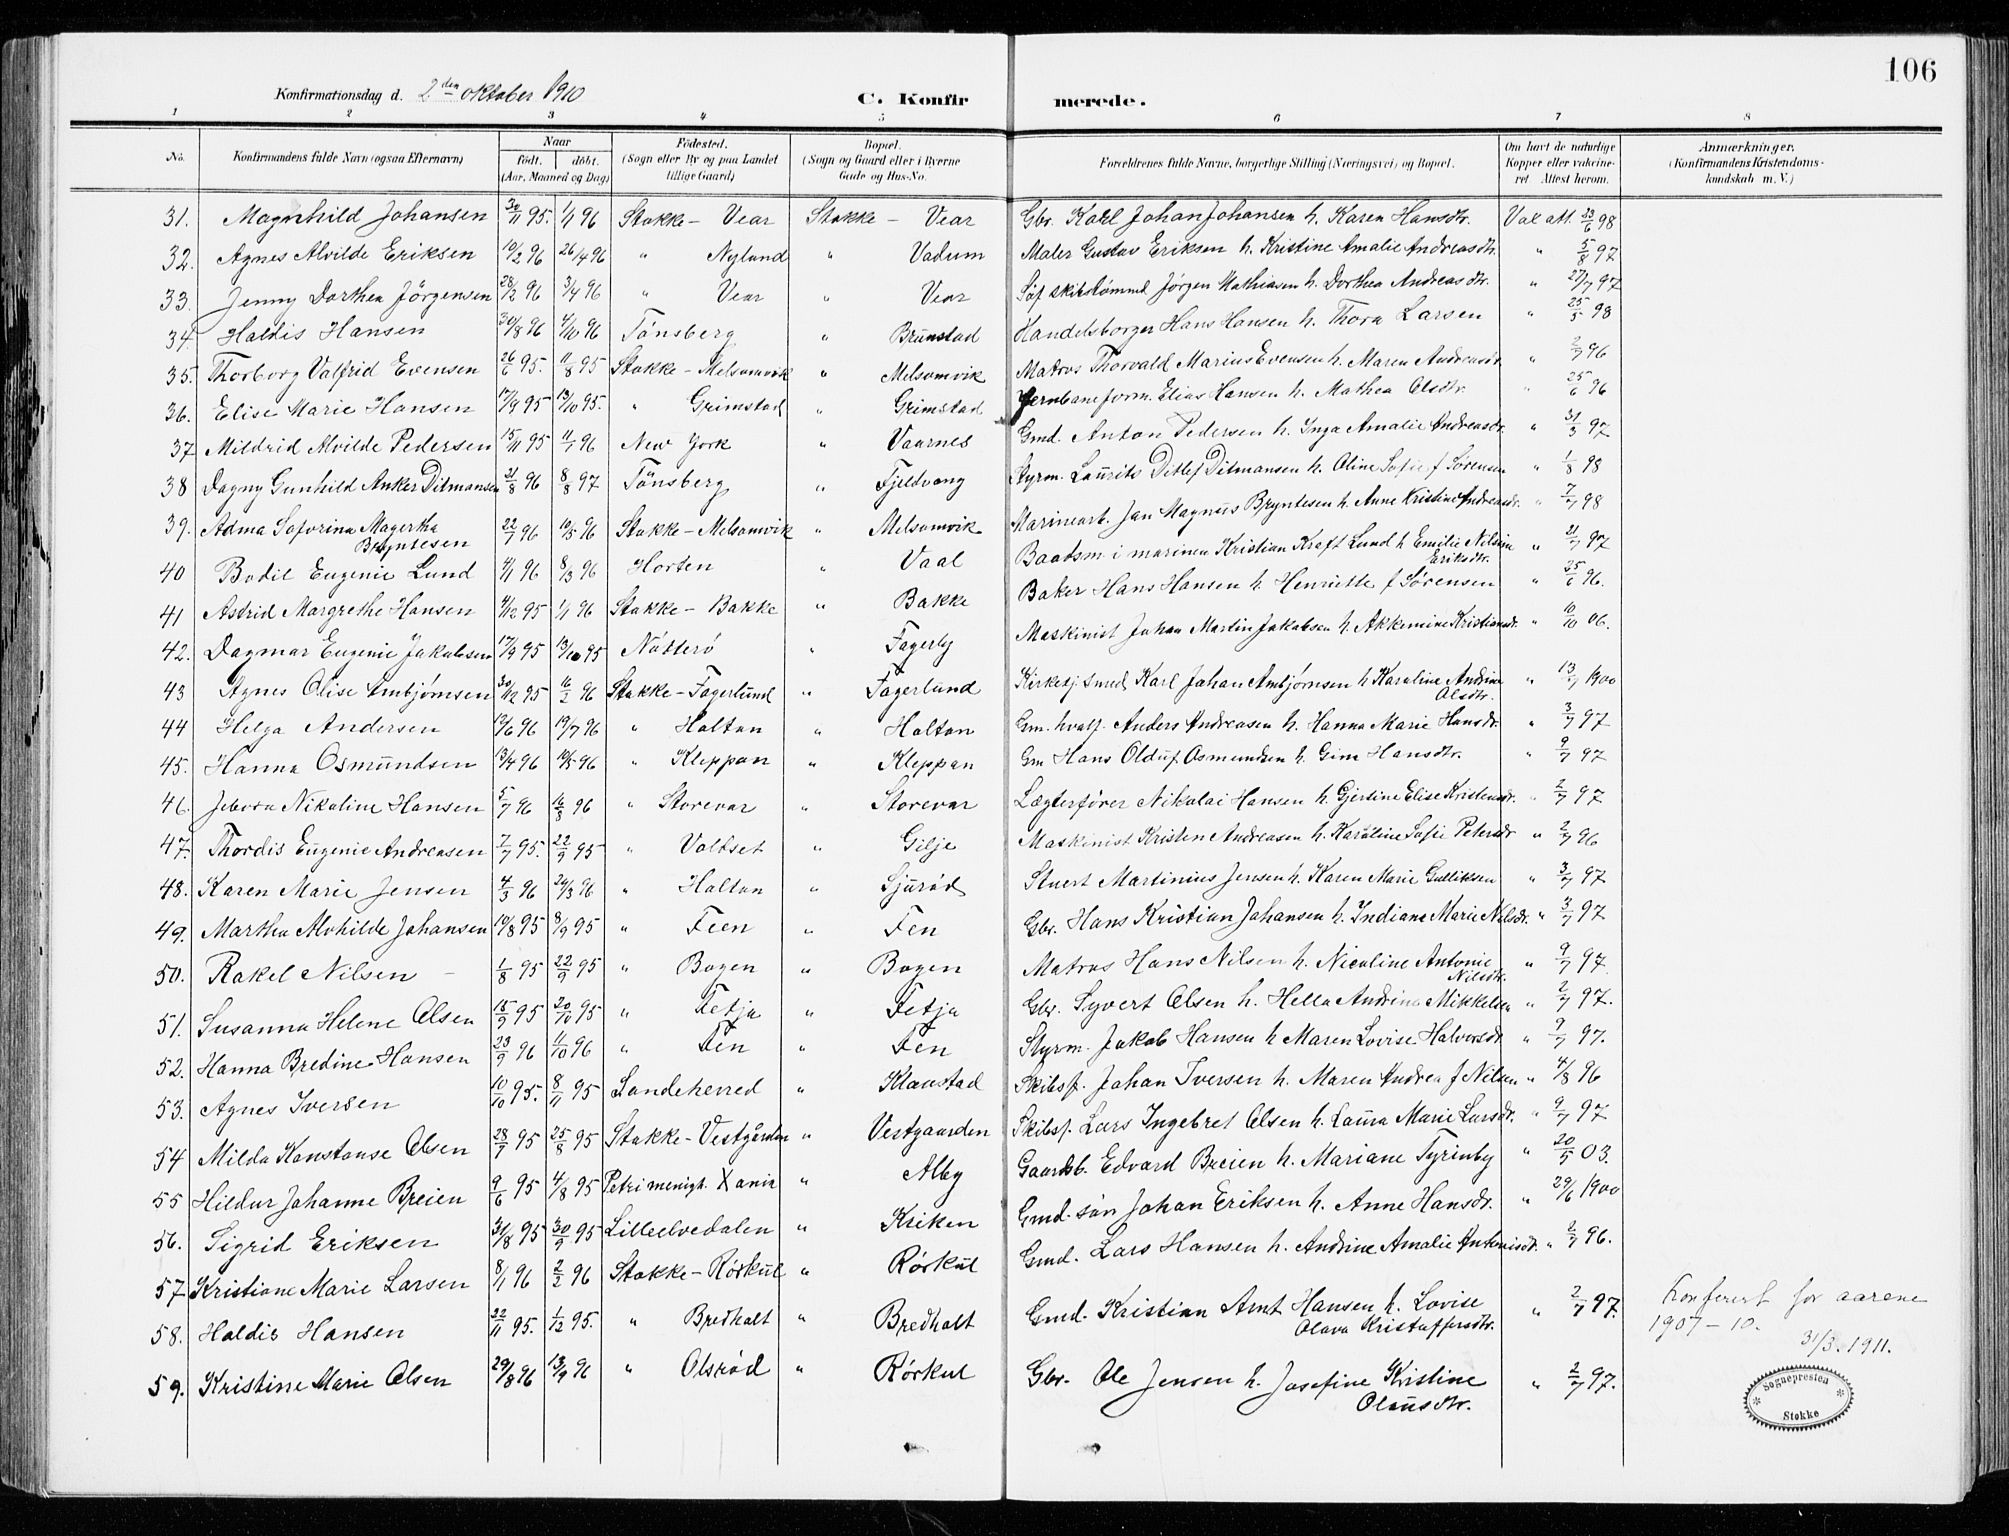 106
Konfirmationsdag d. 2den oktober 1910
C. Konfirmerede.
1 2 3 4 5 6 7 8
No. Konfirmandens fulde Navn (ogsaa Efternavn) Naar født. døbt. (Aar, Maaned og Dag) Fødested. (Sogn eller By og paa Landet tillige Gaard) Bopæl. (Sogn og Gaard eller i Byerne Gade og Hus-No. Forældrenes fulde Navne, borgerlige Stilling (Næringsvei) og Bopæl. Om havt de naturlige Kopper eller vakcineret Attest herom. Anmærkninger. (Konfirmandens Kristendomskundskab m. V.)
31. Magnhild Johansen 30/11 95. 1/1 96 Stokke - Vear Stokke - Vear Gbr. Karl Johan Johansen h. Karen Hansdtr. Vac att. 23/6 98
32. Agnes Alvilde Eriksen 10/2 96 26/4 96 " Nylund " Vadum Maler Gustav Eriksen h. Kristine Amalie Andreasdtr. " 5/8 97
33. Jenny Dorthea Jörgensen 28/2 96 3/4 96 " Vear " Vear Söf skibstømmd Jørgen Mathiasen h. Dorthea Andreasdtr. " 27/7 97
34. Haldis Hansen 30/8 96 4/10 96 Tönsberg " Brunstad Handelsborger Hans Hansen h. Thora Larsen " 25/5 98
35. Thorborg Valfrid Evensen 26/6 95. 11/8 95 Stokke - Melsomvik " Melsomvik Matros Thorvald Marius Evensen h. Maren Andreasdtr. " 2/7 96
36. Elise Marie Hansen 17/9 95 13/10 95. " Grimstad " Grimstad Jernbaneform. Elias Hansen h. Mathea Olsdtr. " 25/6 96
37 Mildrid Alvilde Pedersen 15/11 95 11/1 96 New York " Vaarnes Gmd. Anton Pedersen h. Inga Amalie Andreasdtr. " 31/3 97
38 Dagny Gunhild Anker Ditmansen 21/8 96 8/8 97 Tönsberg " Fjeldvang Styrm. Laurits Ditlef Ditmansen h. Oline Sofie f Sörensen " 1/8 98
39. Adma Saforina Magertha Bryntesen 22/7 96 10/5 96 Stokke - Melsomvik " Melsomvik Marinearb. Jan Magnus Bryntesen h. Anne Kristine Andreasdtr. " 7/7 98
40 Bodil Eugenie Lund 4/1 96 8/3 96 Horten " Vaal Baatsm i marinen Kristian Kraft Lund h Emilie Nilsine Eriksdtr. " 21/7 97
41 Astrid Margrethe Hansen 4/12 95 1/1 96 Stokke - Bakke " Bakke Baker Hans Hansen h. Henriette f Sørensen " 25/6 96.
42. Dagmar Eugenie Jakobsen 17/9 95 13/10 95 Nötterö " Fagerly Maskinist Johan Martin Jakobsen h. Akkemine Kristiansdtr. " 10/10 06.
43 Agnes Olise Ambjørnsen 30/12 95 16/2 96 Stokke - Fagerlund " Fagerlund Kirketj. Smed Karl Johan Ambjørnsen h Karoline Andrine Olsdtr. " 13/7 1900
44 Helga Andersen 13/6 96 19/7 96 " Holtan " Holtan Gm. hvalf. Anders Andreasen h. Hanna Marie Hansdtr. " 3/7 97
45. Hanna Osmundsen 13/4 96 10/5 96 " Kleppan " Kleppan Gm Hans Oluf Osmundsen h. Gina Hansdtr. " 9/7 97
46. Jebora Nikoline Hansen 5/7 96 16/8 96 " Storevar " Storevar Lægterfører Nikolai Hansen h. Gjertine Elise Kristensdtr. " 2/7 97
47. Thordis Eugenie Andreasen 7/7 95. 22/9 95 " Valtset " Gilje Maskinist Kristen Andreasen h. Karoline Sofie Petersdtr " 2/7 96
48. Karen Marie Jensen 4/3 96 24/3 96 " Holtan " Sjuröd Stuert Martinius Jensen h. Karen Marie Gulliksen " 3/7 97
49. Martha Alvhilde Johansen 10/8 95 8/9 95 " Feen " Fen Gbr. Hans Kristian Johansen h. Indiane Marie Nilsdtr. " 3/7 97
50. Rakel Nilsen 1/8 95 22/9 95 " Bogen " Bogen Matros Hans Nilsen h. Nicoline Antonie Nilsdtr. " 9/7 97.
51. Susanna Helene Olsen 15/9 95 20/10 95 " Fetja " Fetja Gbr. Syvert Olsen h. Hella Andrine Mikkelsen " 2/7 97.
52. Hanna Bredine Hansen 23/9 96 11/10 96 " Fen " Fen Styrm. Jakob Hansen h Maren Lovise Halvorsdtr " 9/7 97.
53. Agnes Iversen 10/10 95. 8/11 95 Sandeherred " Klavstad Skibsf. Johan Iversen h. Maren Andrea f Nilsen " 4/8 96
54 Milda Konstanse Olsen 28/7 95 25/8 95 Stokke - Vestgården " Vestgaarden Skibsf. Lars Ingebret Olsen h. Laura Marie Larsdtr. " 9/7 97
55 Hildur Johanne Breien 9/6 95 4/8 95 Petri menigh. Xania " Alby Gaardb. Edvard Breien h. Mariane Tyrinby " 20/5 03.
56. Sigrid Eriksen 31/8 95 30/9 95 Lilleelvedalen " Kriken Gmd. sön Johan Eriksen h. Anne Hansdtr. " 29/6 1900
57 Kristiane Marie Larsen 8/1 96 2/2 96 Stokke - Rörkul " Rørkul Gmd. Lars Hansen h. Andrine Amalie Antonisdtr. " 2/7 96.
58. Haldis Hansen 22/11 95. 1/12 95. " Bredholt " Bredholt Gmd. Kristian Arnt Hansen h. Lovise Olava Kristoffersdtr. " 2/7 97.
Konferert for aarene
1907 - 10.
31/3. 1911.
59. Kristine Marie Olsen 29/8 96 13/9 96 " Olsröd " Rörkul Gbr. Ole Jensen h. Josefine Kristine Olausdtr. " 2/7 97.
Sognepresten
Stokke